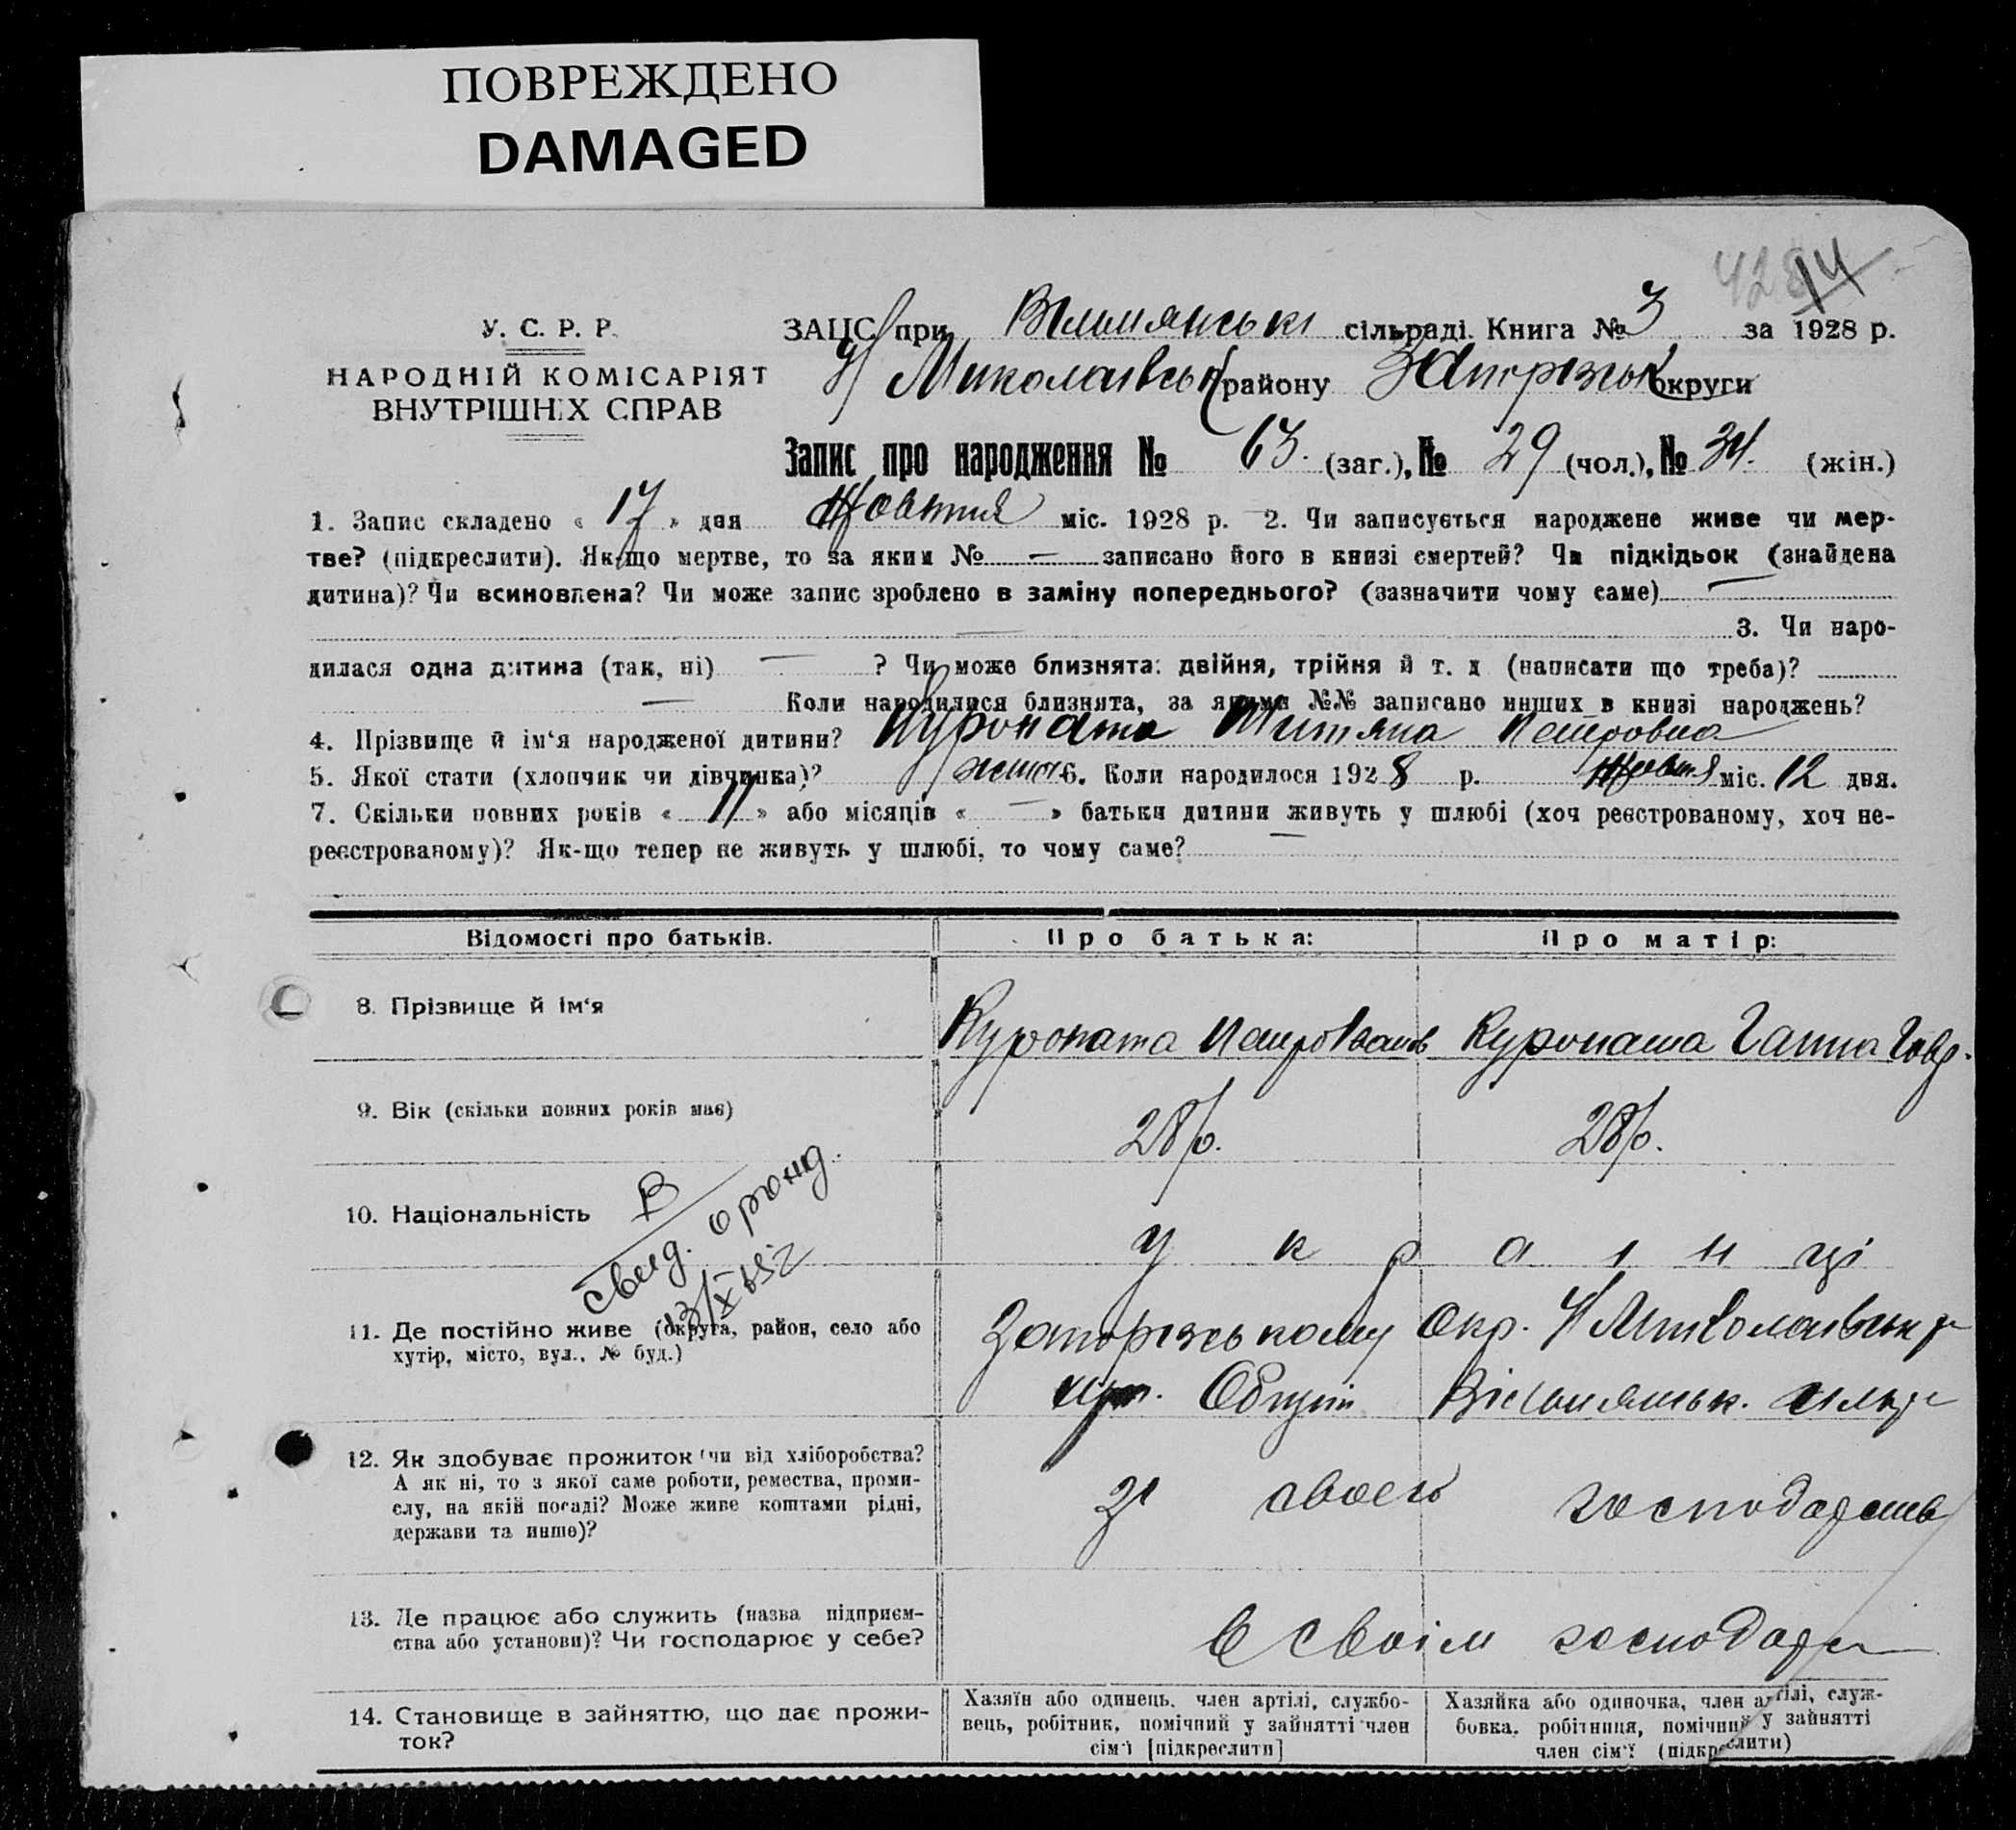 ПОВРЕЖДЕНО
DAMAGED
У. С. Р. Р.
НАРОДНІЙ КОМІСАРІЯТ
ВНУТРІШНІХ СПРАВ
14
ЗАЦС при сільраді. Книга № 3 за 1928 р.
Миколаівськ району Запоріжськ округи
Запис про народження № 63. (заг.), № 29 (чол.), № 34. (жін.)
1. Запис складено « 17 » дня Жовтня міс. 1928 р. 2. Чи записується народжене живе чи мер-
тве? (підкреслити). Як-що мертве, то за яким № — записано його в книзі смертей? Чи підкідьок (знайдена
дитина)? Чи всиновлена? Чи може запис зроблено в заміну попереднього? (зазначити чому саме) —
— 3. Чи наро-
дилася одна дитина (так, ні) — ? Чи може близнята: двійня, трійня й т. д (написати що треба)?
— Коли народилися близнята, за якими №№ записано инших в книзі народжень?
4. Прізвище й ім‘я народженої дитини? Куропата Титяна Петровна
5. Якої стати (хлопчик чи дівчинка)? 6. Коли народилося 1928 р. Жовтня міс. 12 дня.
7. Скільки повних років « 11 » або місяців « — » батьки дитини живуть у шлюбі (хоч реєстрованому, хоч не-
реєстрованому)? Як-що тепер не живуть у шлюбі, то чому саме? —
Відомості про батьків. Про батька: Про матір:
8. Прізвище й ім‘я
Куропата Петро Іванов Куропата Ганна Гавр.
9. Вік (скільки повних років має)
28 р. 28 р.
10. Національність
українці
В
свид.
13/X 1952
11. Де постійно живе (округа, район, село або
хутір, місто, вул., № буд.)
Запоріжському Окр. Миколаівськ р
12. Як здобуває прожиток (чи від хліборобства?
А як ні, то з якої саме роботи, ремества, проми-
слу, на якій посаді? Може живе коштами рідні,
держави та инше)?
Зі своего господарств
13. Де працює або служить (назва підприєм-
ства або установи)? Чи господарює у себе?
В своім господар
14. Становище в зайняттю, що дає прожи-
ток?
Хазяїн або одинець, член артілі, службо-
вець, робітник, помічний у зайнятті член
сім‘ї [підкреслити]
Хазяйка або одиночка, член артілі, служ-
бовка, робітниця, помічний у зайнятті
член сім‘ї (підкреслити)